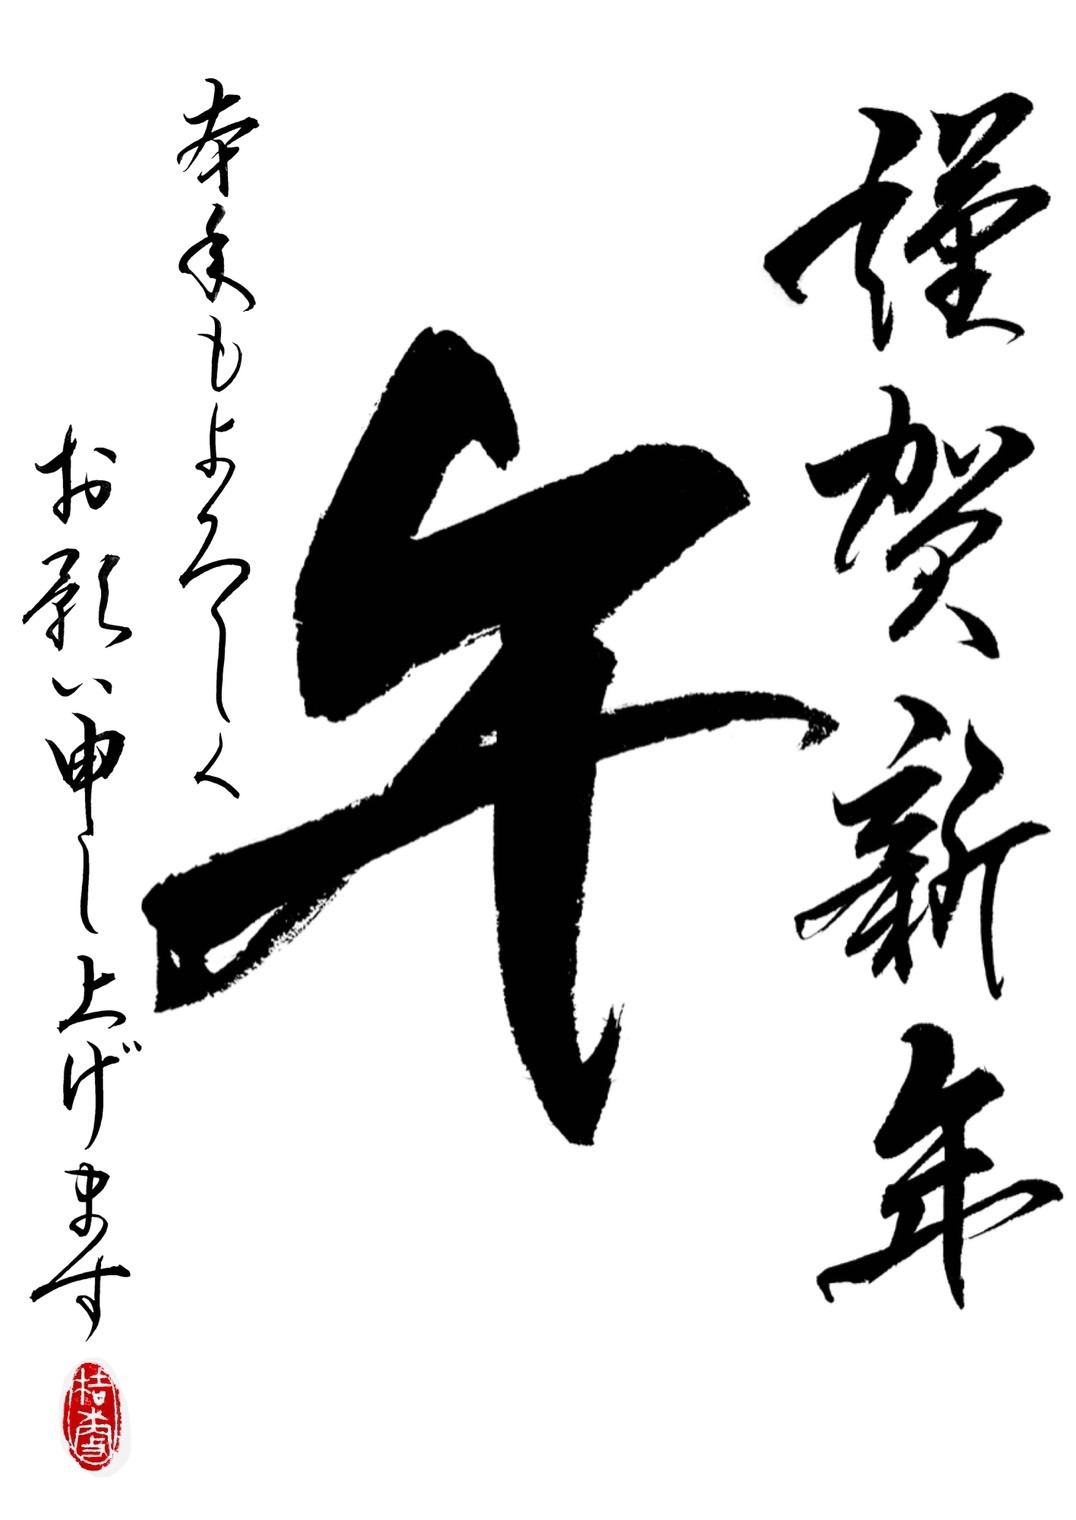 謹賀新年
午
本年もよろしく
お願い申し上げます